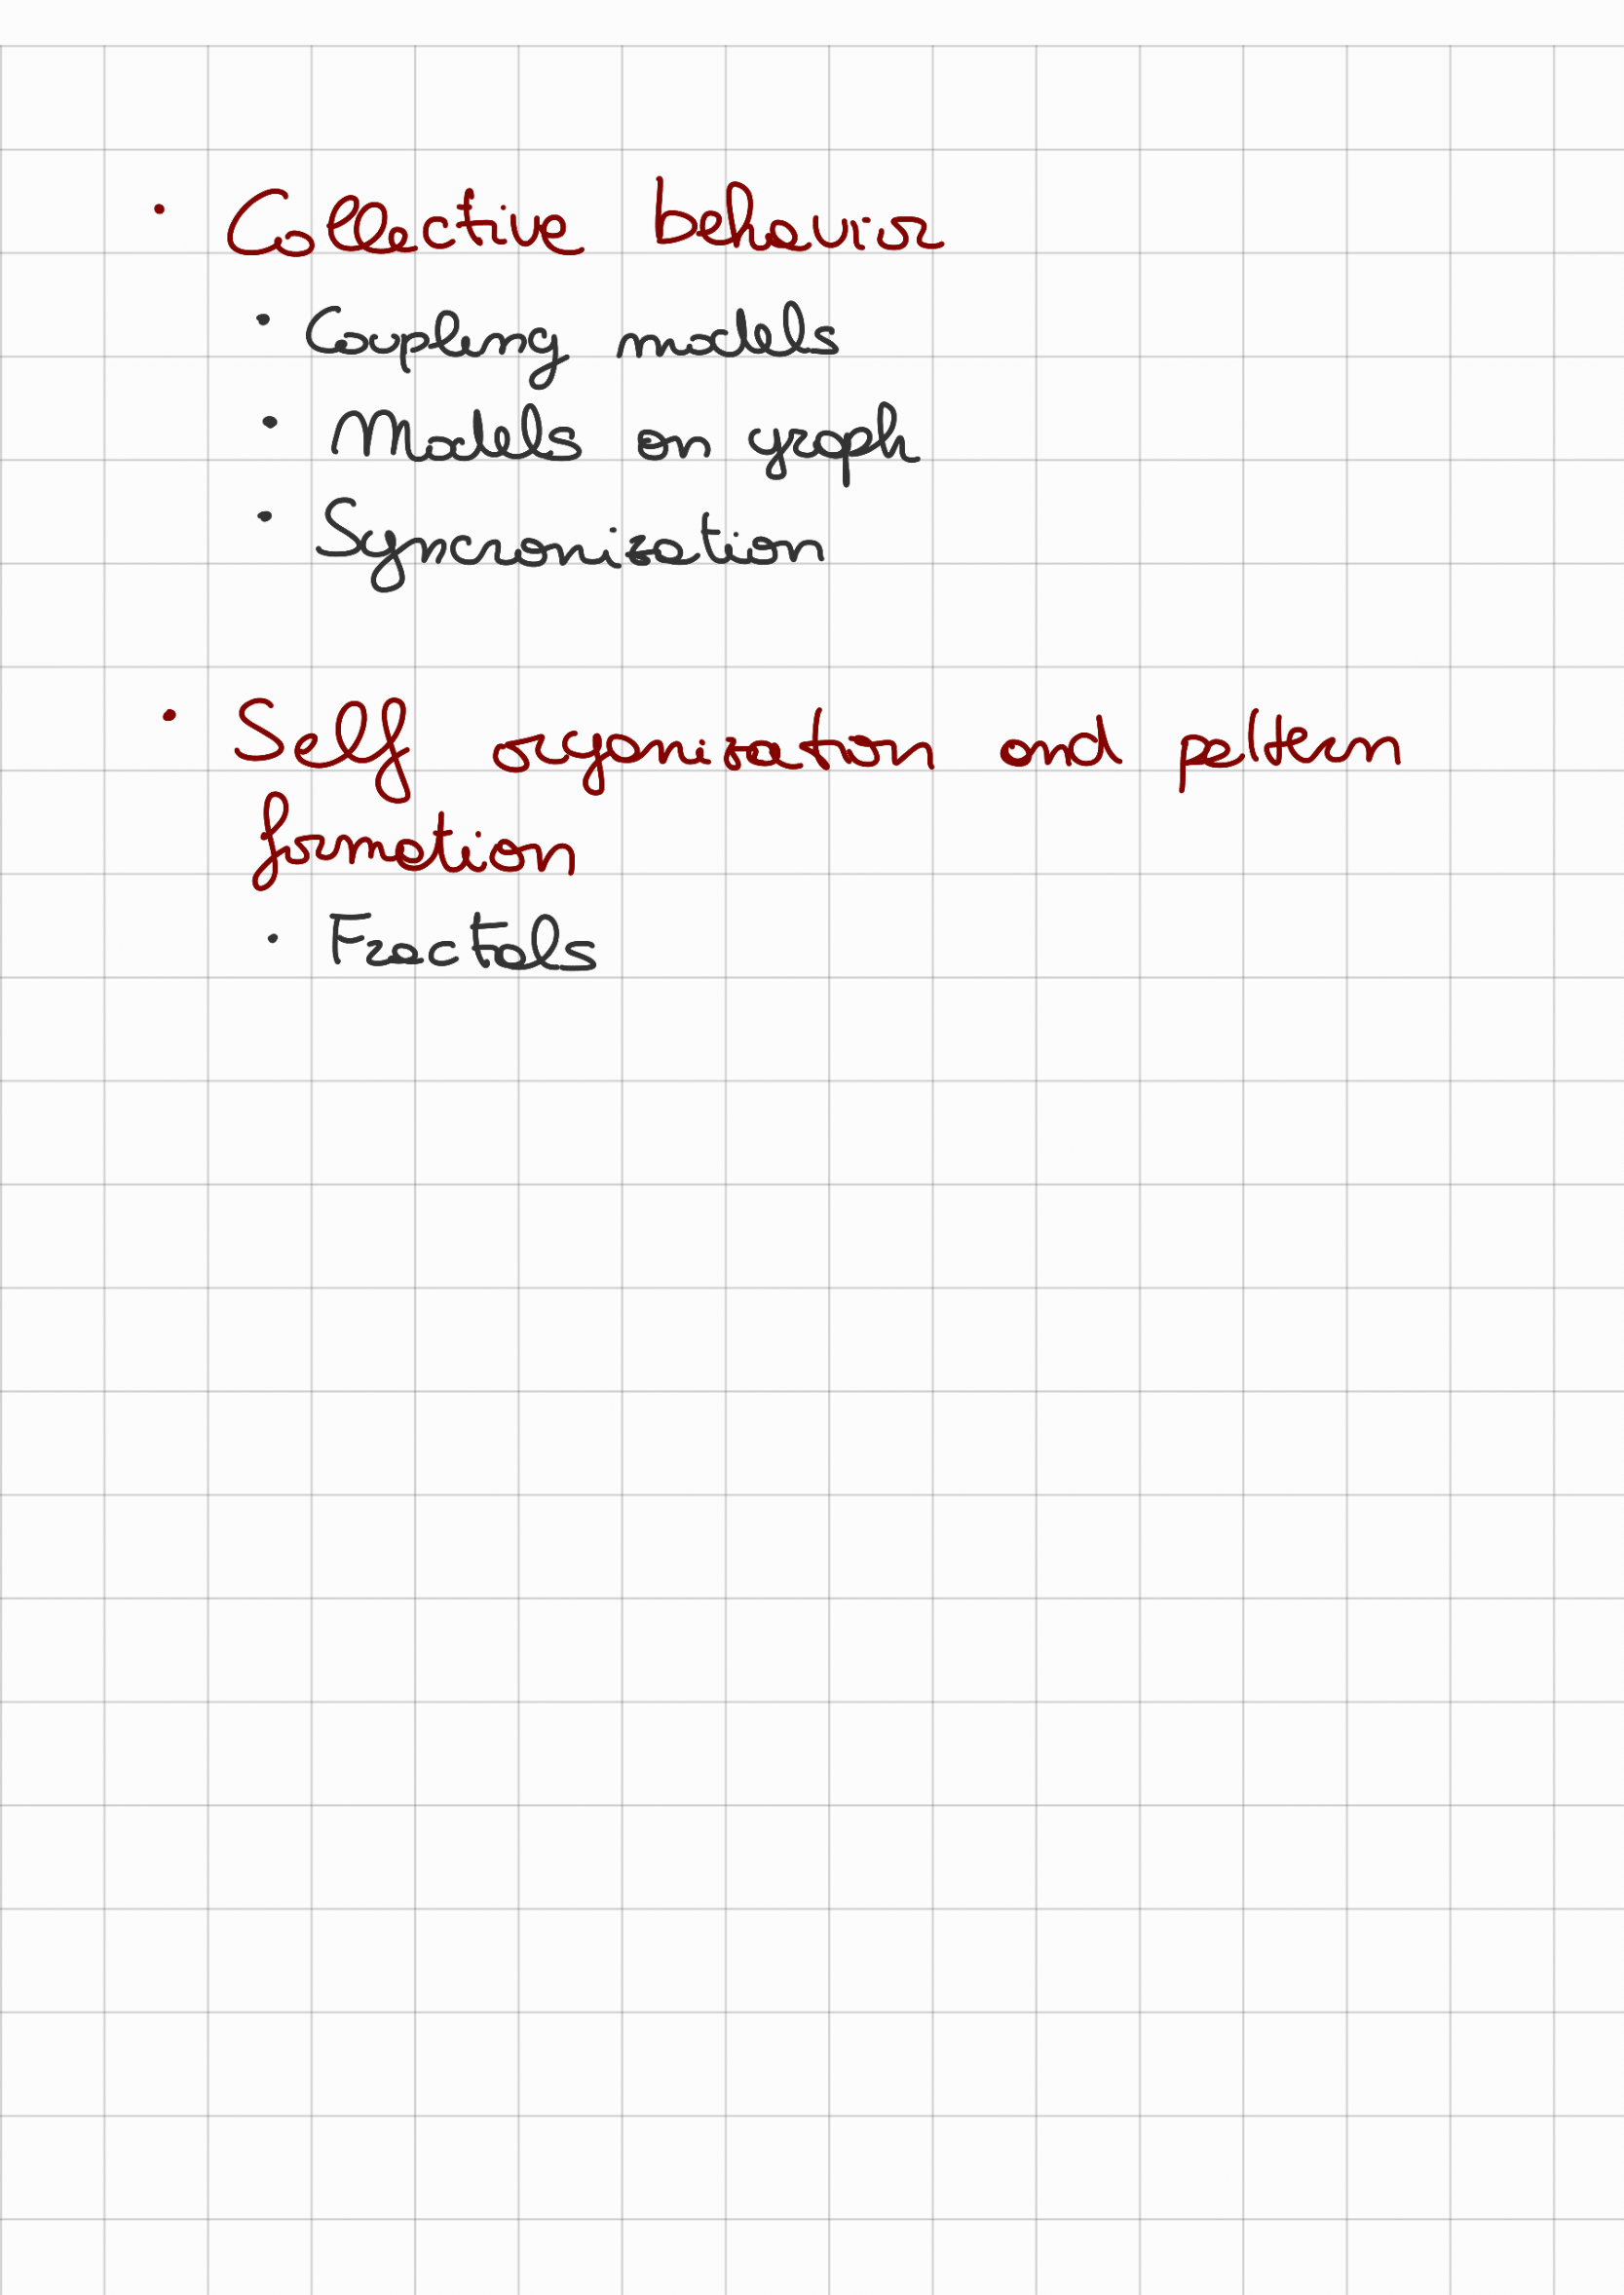 · Collective behavior
· Coupling models
· Models on graph
· Syncronization
· Self organization and pattern
formation
· Fractals